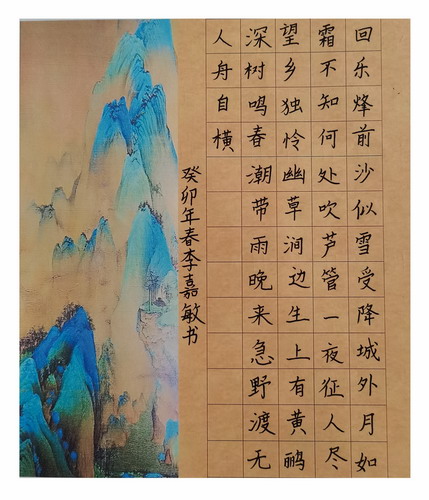 回乐烽前沙似雪受降城外月如
霜不知何处吹芦管一夜征人尽
望乡独怜幽草涧边生上有黄鹂
深树鸣春潮带雨晚来急野渡无
人舟自横
癸卯年春李嘉敏书